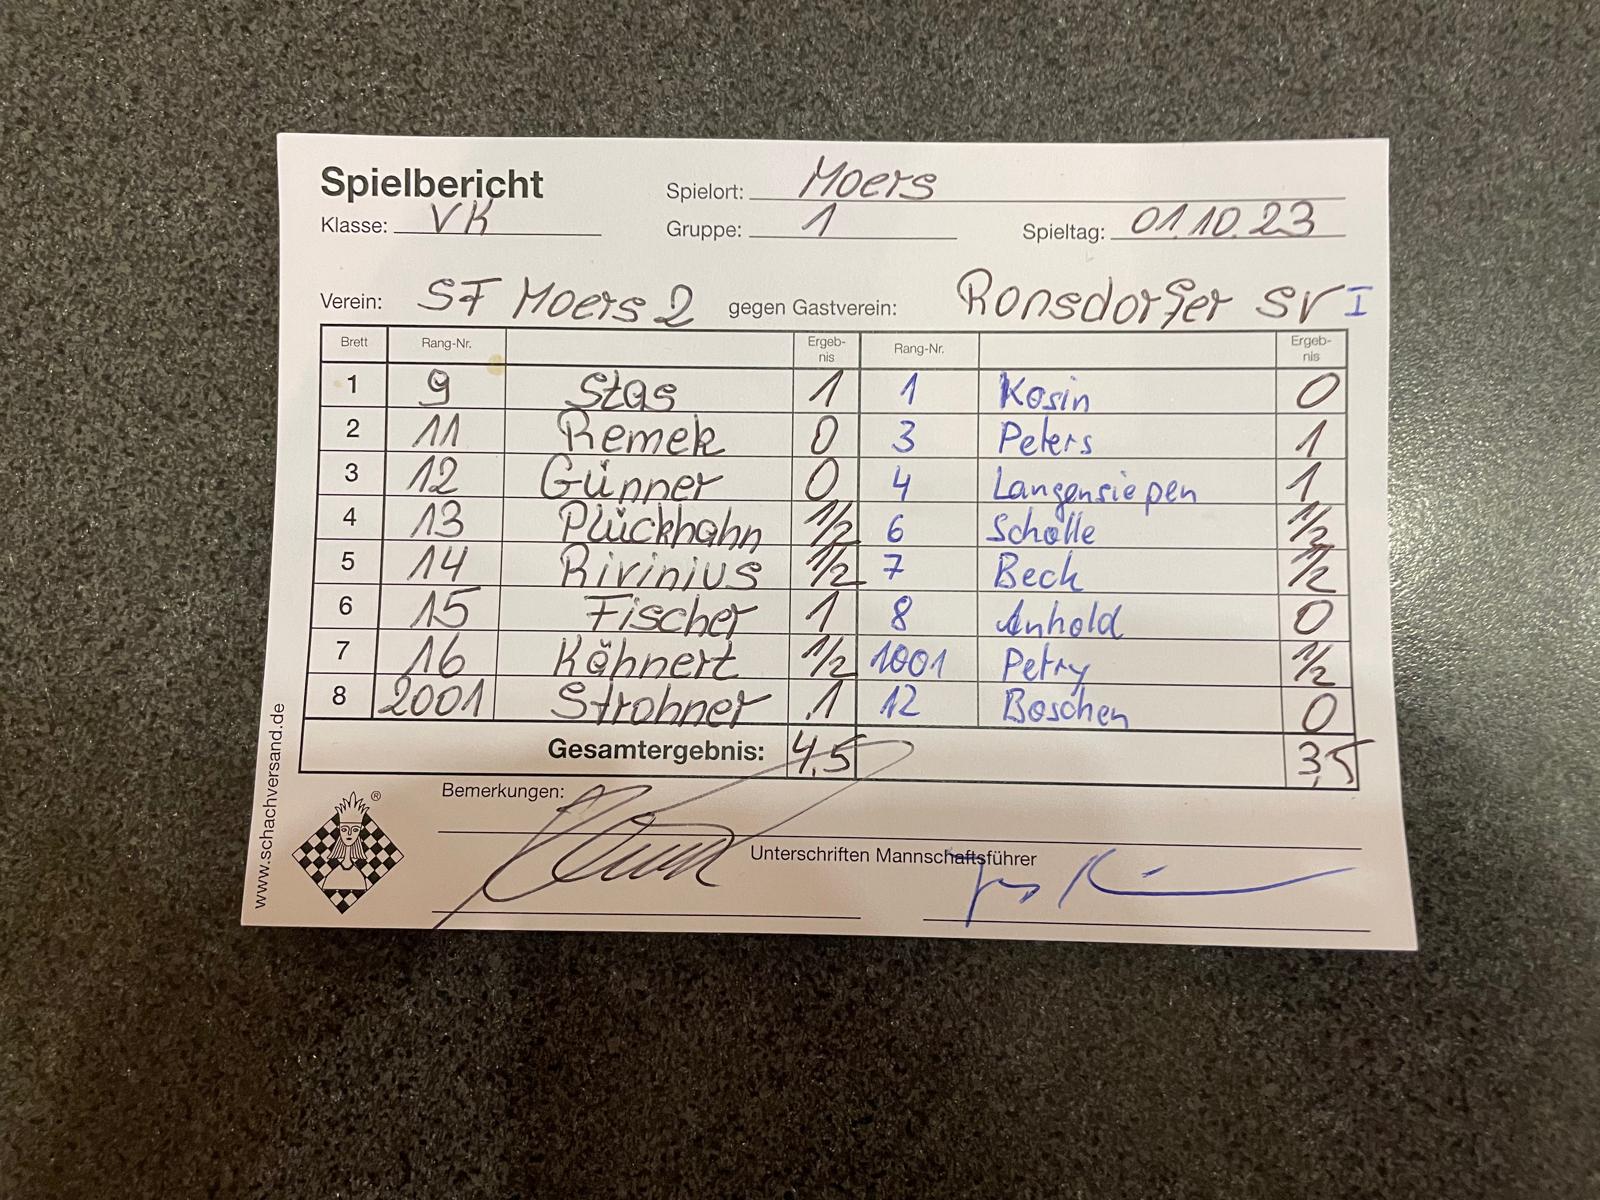 Spielbericht Spielort: Moers
Klasse: VK Gruppe: 1 Spieltag: 01.10.23
Verein: SF Moers 2 gegen Gastverein: Ronsdorfer SV I
Brett Rang-Nr. Ergeb-nis Rang-Nr. Ergeb-nis
1 9 Stas 1 1 Kosin 0
2 11 Remek 0 3 Peters 1
3 12 Günner 0 4 Langensiepen 1
4 13 Plückhahn 1/2 6 Scholle 1/2
5 14 Rivinius 1/2 7 Beck 1/2
6 15 Fischer 1 8 Anhold 0
7 16 Kähnert 1/2 1001 Petry 1/2
8 2001 Strohner 1 12 Boschen 0
Gesamtergebnis: 4,5 3,5
Bemerkungen:
Unterschriften Mannschaftsführer
www.schachversand.de
®